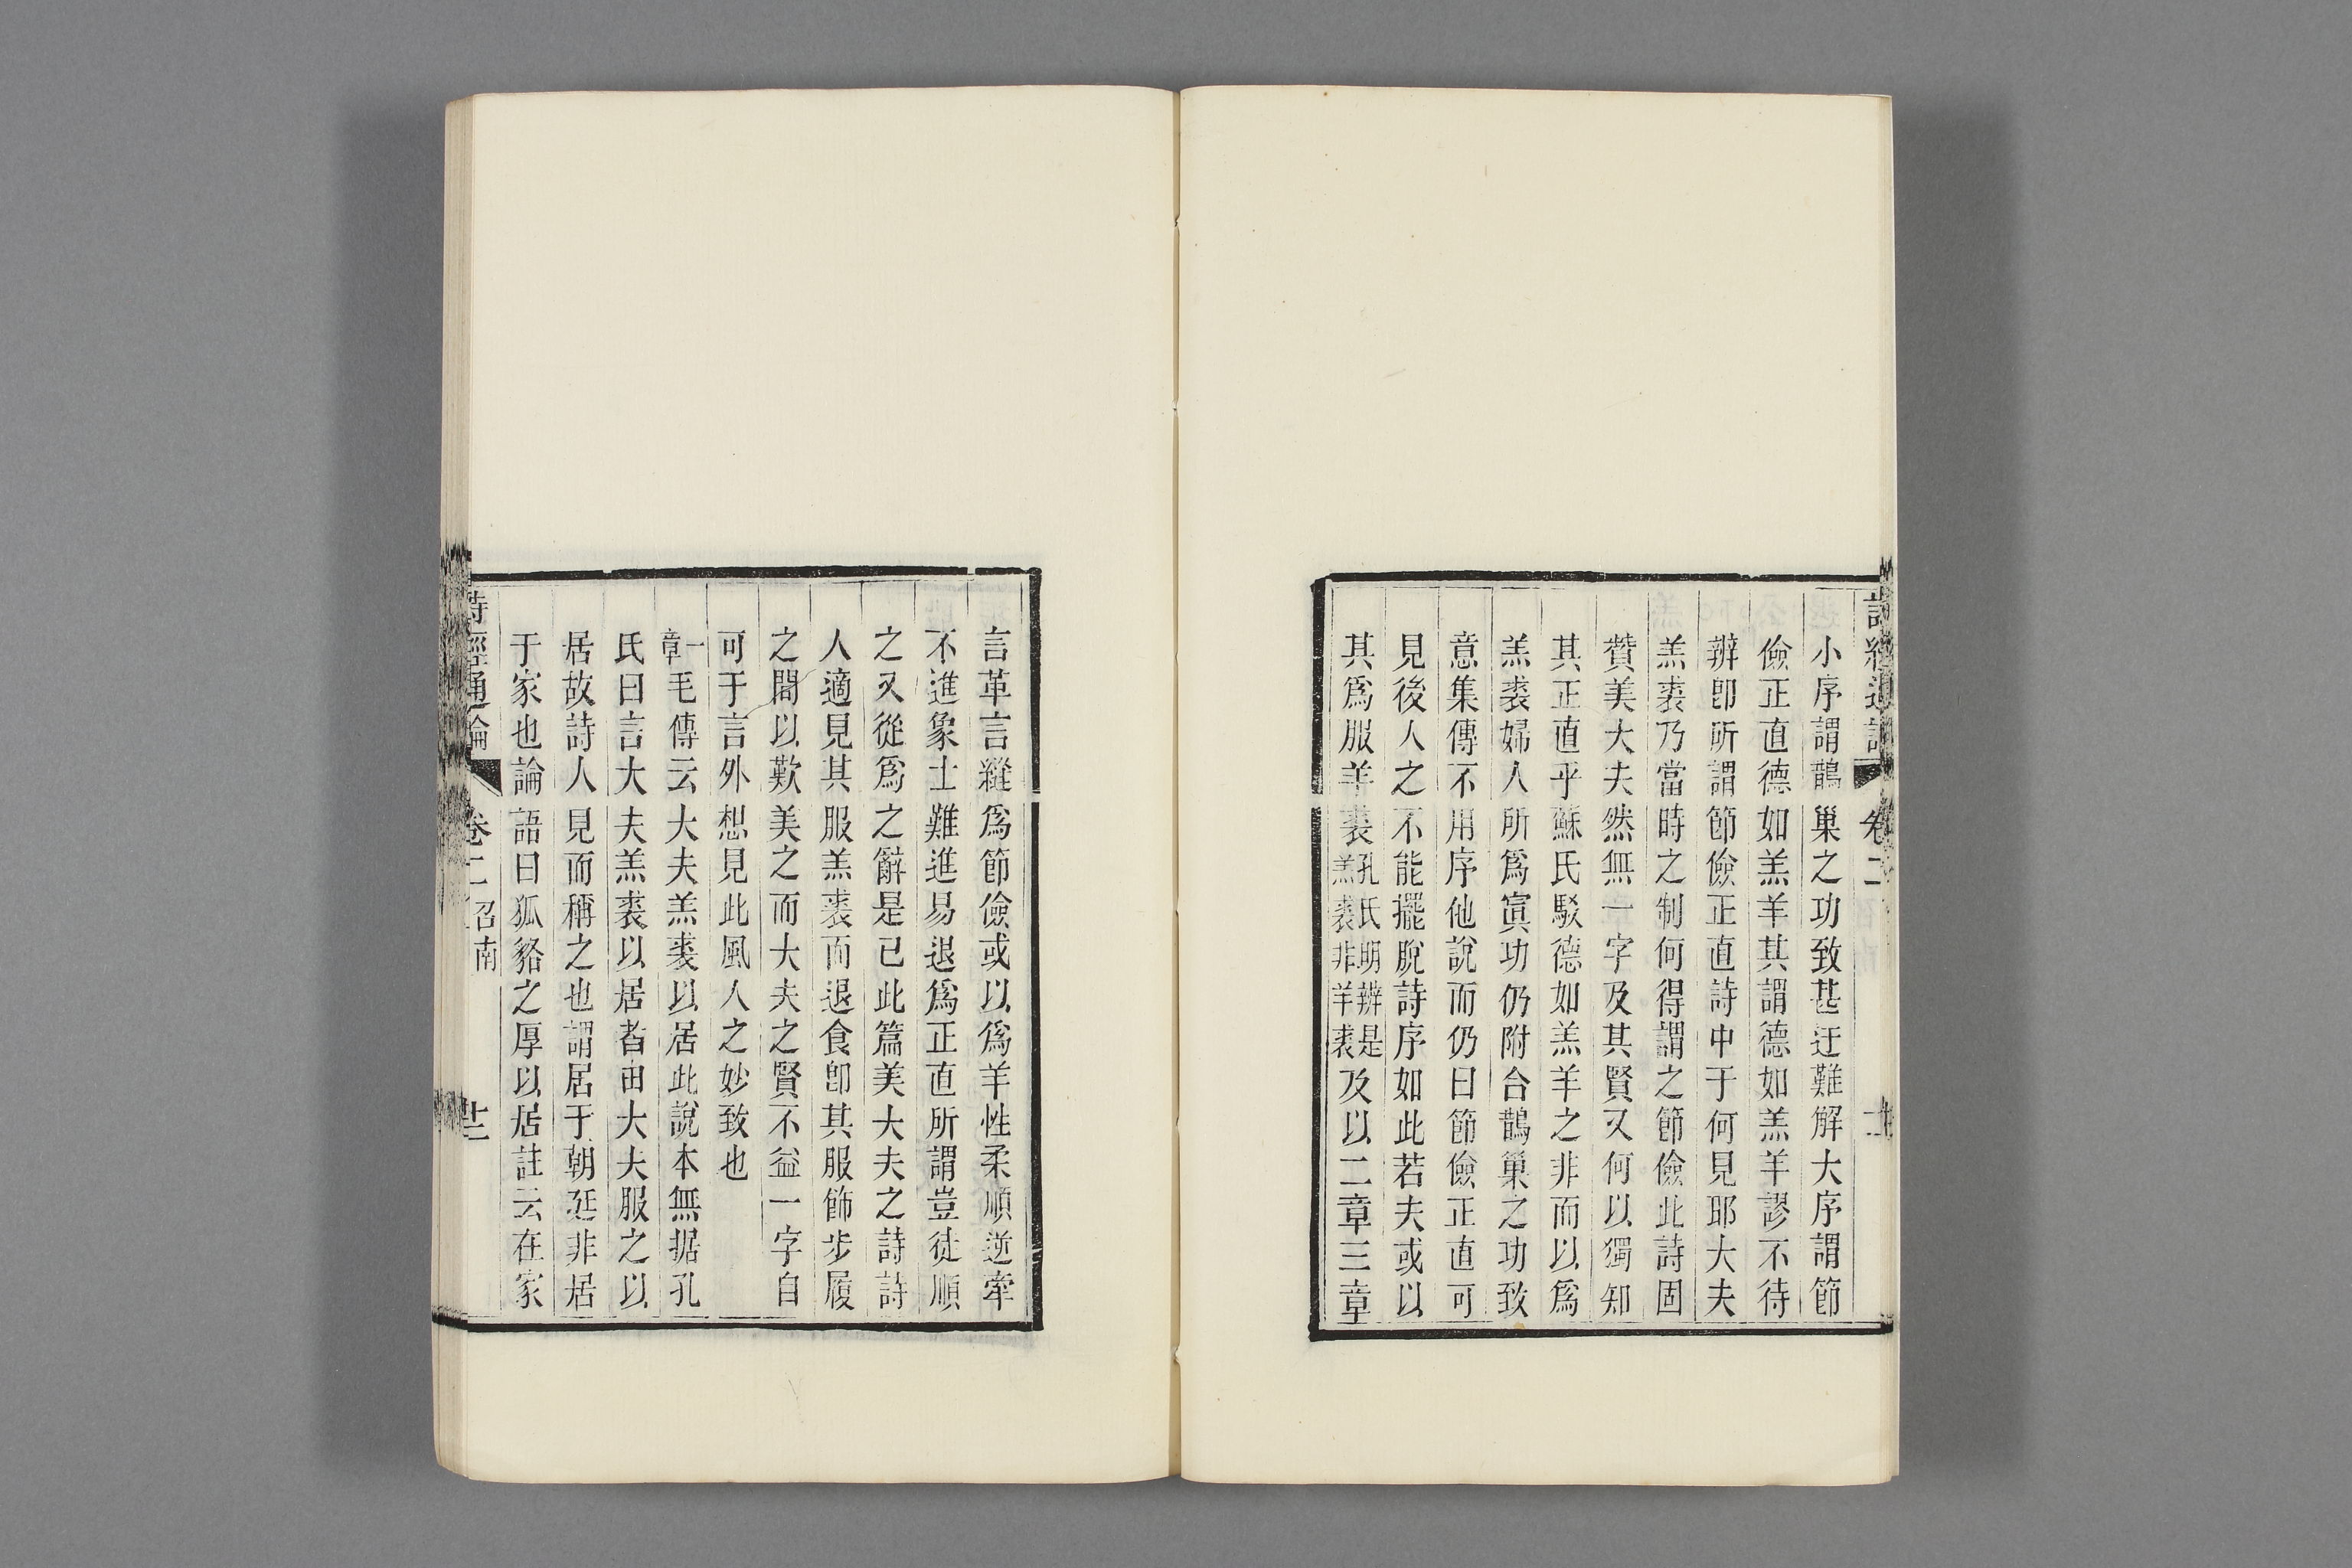 小序謂鵲巢之功致甚迂難解大序謂節
儉正直德如羔羊其謂德如羔羊謬不待
辨卽所謂節儉正直詩中于何見耶大夫
羔裘乃當時之制何得謂之節儉此詩固
贊美大夫然無一字及其賢又何以獨知
其正直乎蘇氏駁德如羔羊之非而以爲
羔裘婦人所爲寘功仍附合鵲巢之功致
意集傳不用序他說而仍曰節儉正直可
見後人之不能擺脫詩序如此若夫或以
其爲服羊裘孔氏明辨是羔裘非羊裘及以二章三章
言革言縫爲節儉或以爲羊性柔順逆牽
不進象士難進易退爲正直所謂豈徒順
之又從爲之辭是已此篇美大夫之詩詩
人適見其服羔裘而退食卽其服飾步履
之間以歎美之而大夫之賢不益一字自
可于言外想見此風人之妙致也
一章毛傳云大夫羔裘以居此說本無据孔
氏曰言大夫羔裘以居者由大夫服之以
居故詩人見而稱之也謂居于朝廷非居
于家也論語曰狐貉之厚以居註云在家
詩經通論 卷二 召南